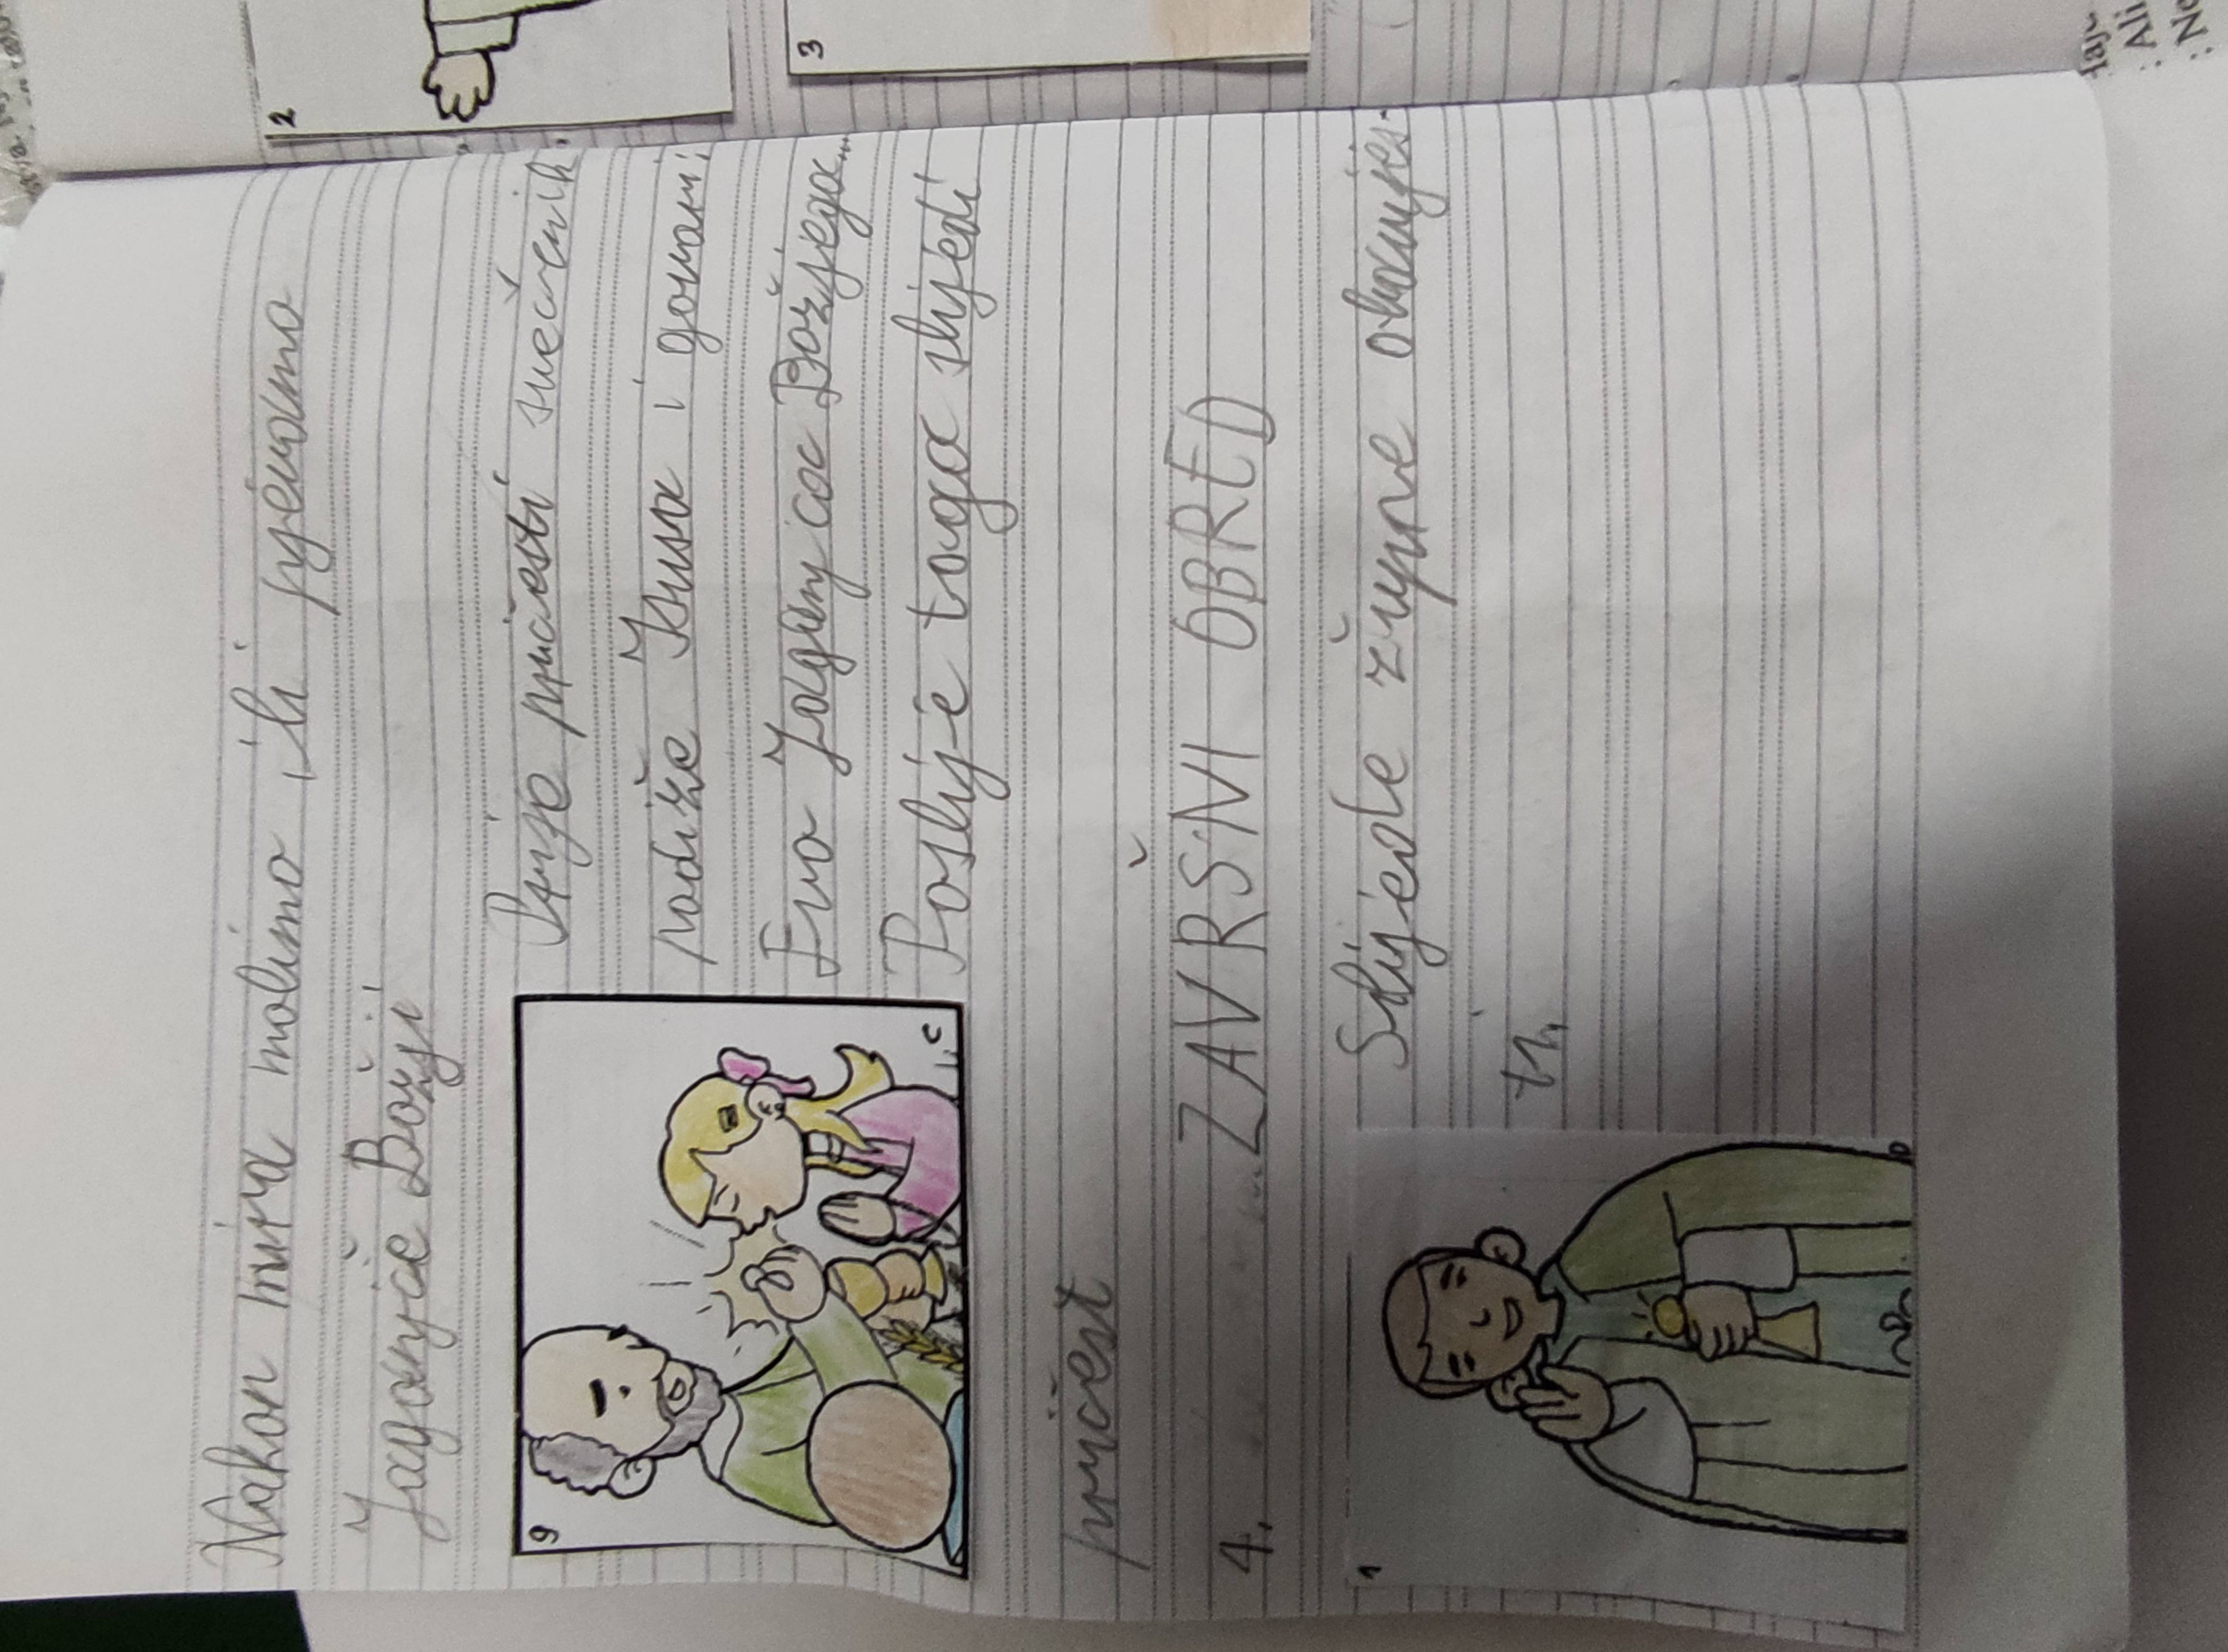 Nakon mira molimo ili pjevamo
Jaganjče Božji
9
Prije pričesti svećenik
podiže Isusa i govori:
Evo Jaganjca Božjega...
Poslije toga slijedi
pričest
4. ZAVRŠNI OBRED
1
Slijede župne obavijes-
ti.
2
3